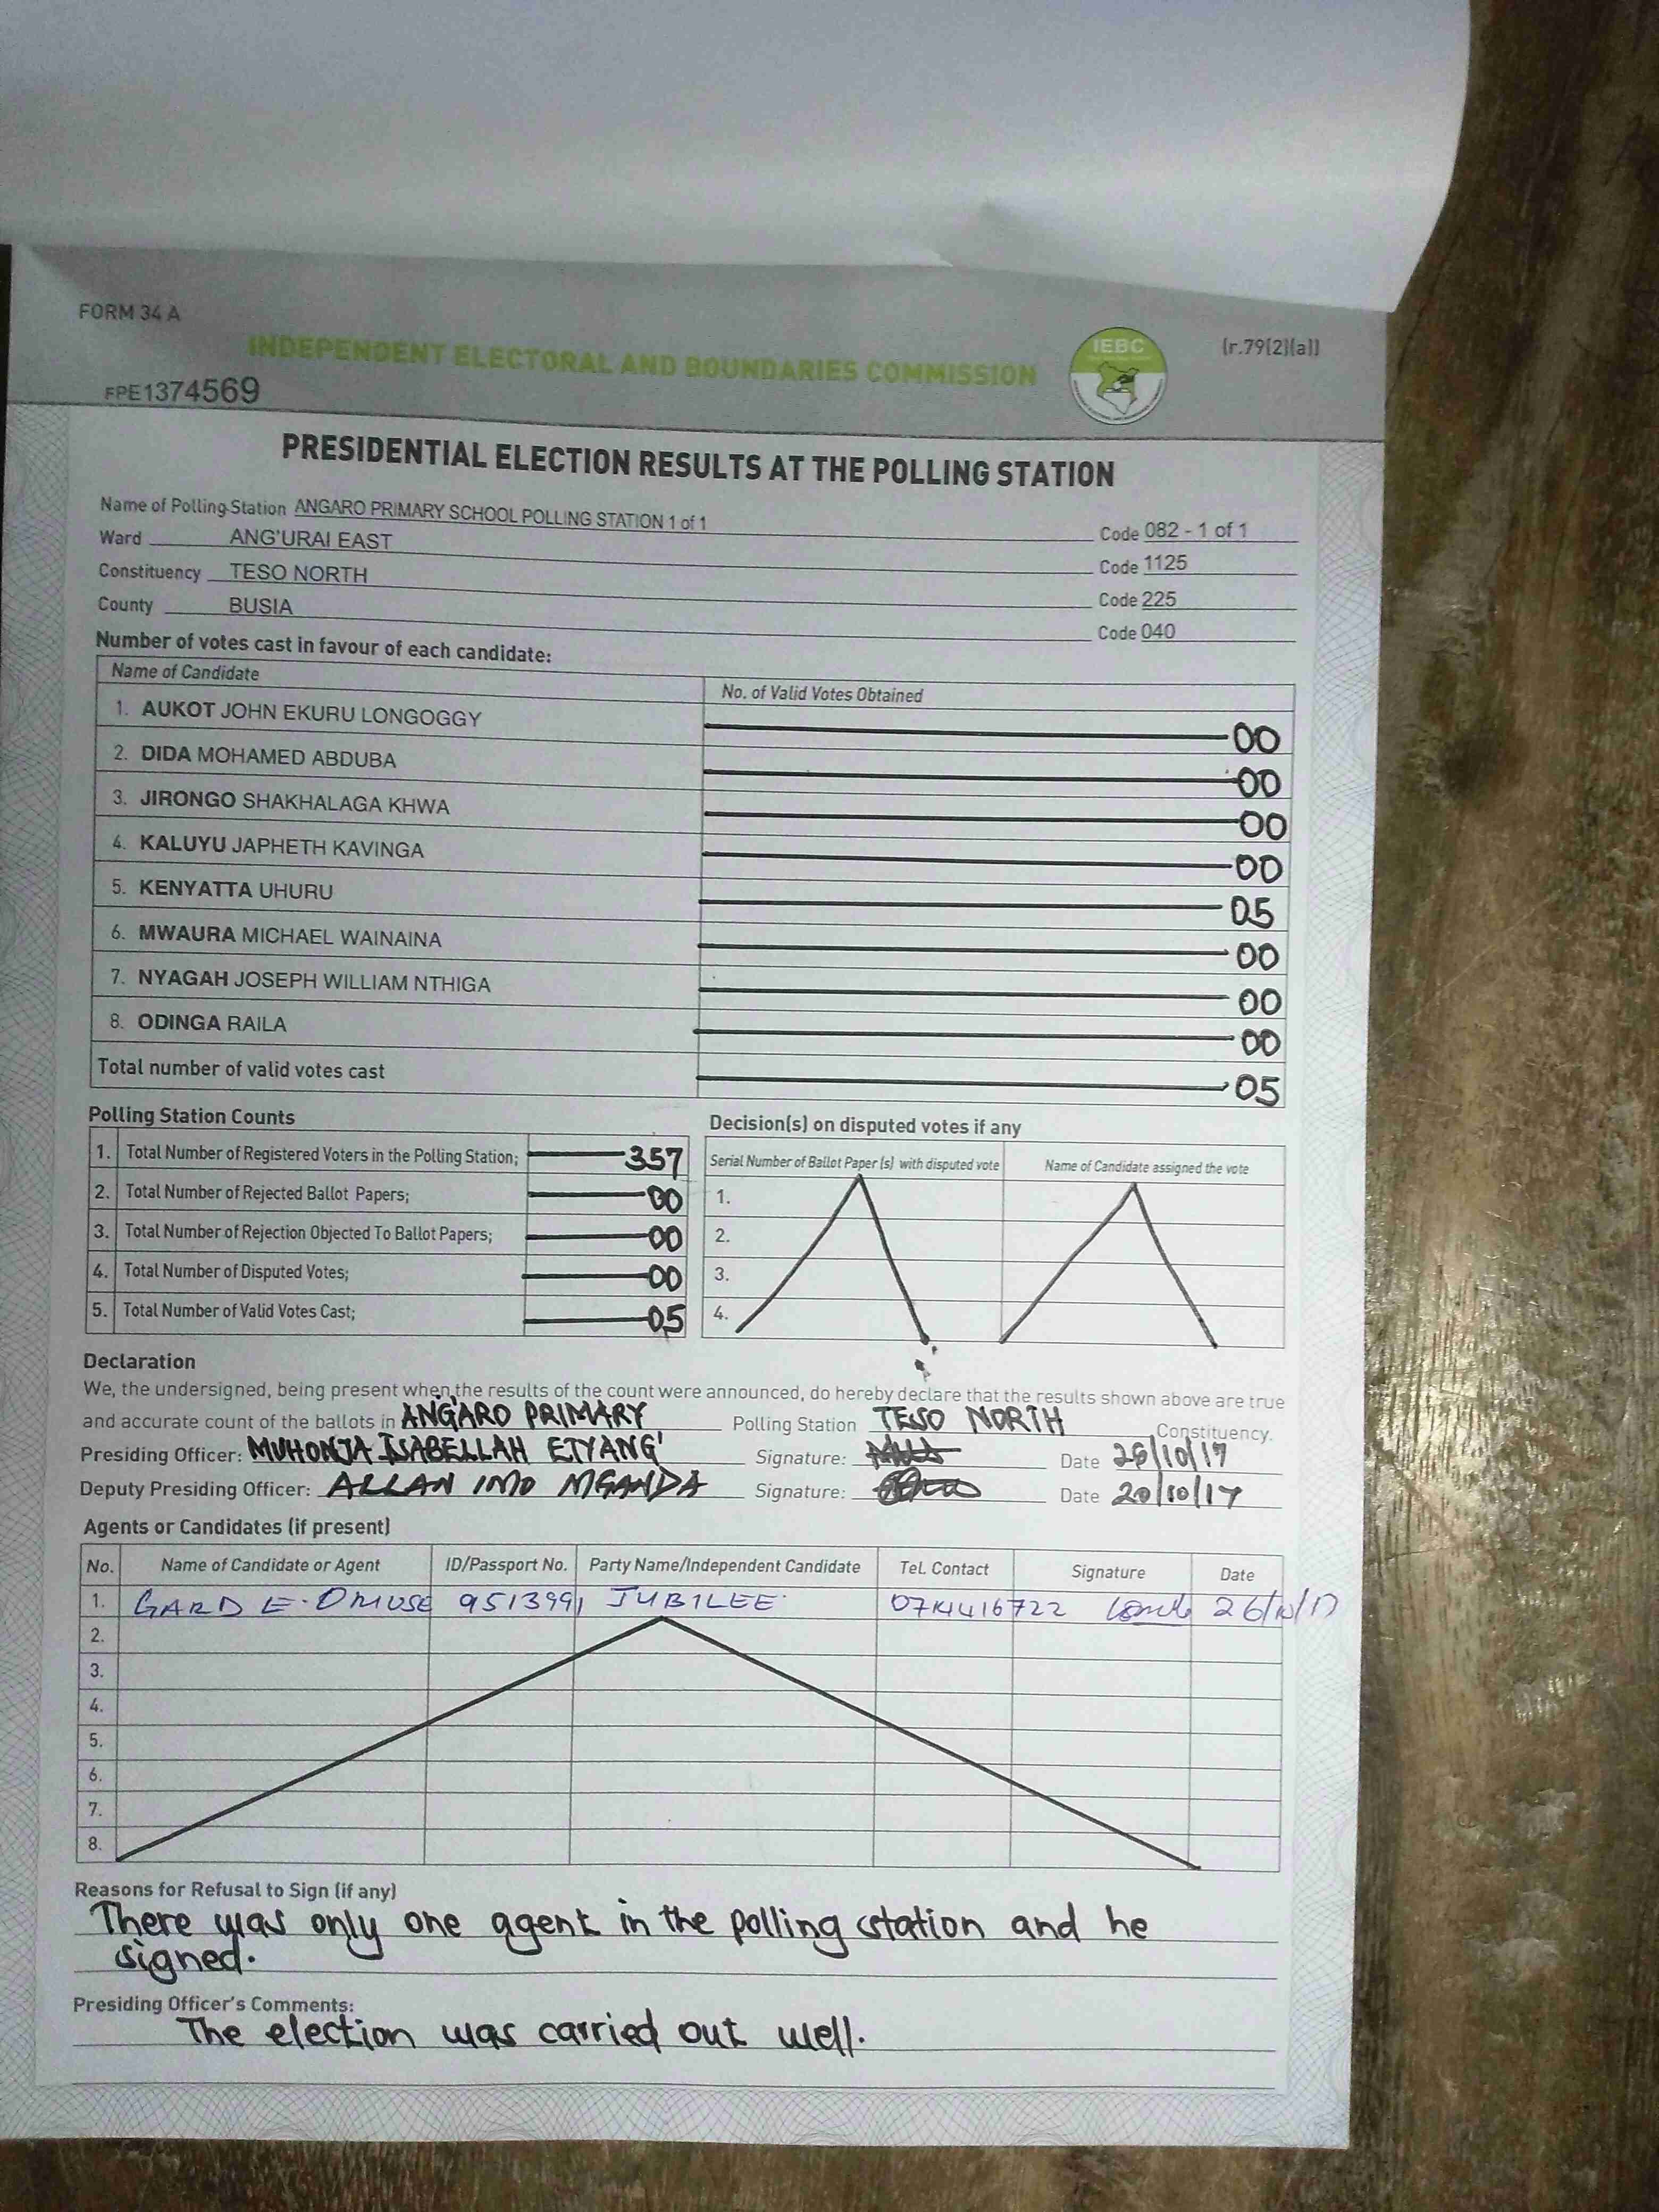 FORM 34 A
INDEPENDENT ELECTORAL AND BOUNDARIES COMMISSION
IEBC
(r.79(2)(a))
FPE1374569
PRESIDENTIAL ELECTION RESULTS AT THE POLLING STATION
Name of Polling Station ANGARO PRIMARY SCHOOL POLLING STATION 1 of 1 Code 082 - 1 of 1
Ward ANG'URAI EAST Code 1125
Constituency TESO NORTH Code 225
County BUSIA Code 040
Number of votes cast in favour of each candidate:
Name of Candidate No. of Valid Votes Obtained
1. AUKOT JOHN EKURU LONGOGGY 00
2. DIDA MOHAMED ABDUBA 00
3. JIRONGO SHAKHALAGA KHWA 00
4. KALUYU JAPHETH KAVINGA 00
5. KENYATTA UHURU 05
6. MWAURA MICHAEL WAINAINA 00
7. NYAGAH JOSEPH WILLIAM NTHIGA 00
8. ODINGA RAILA 00
Total number of valid votes cast 05
Polling Station Counts
1. Total Number of Registered Voters in the Polling Station; 357
2. Total Number of Rejected Ballot Papers; 00
3. Total Number of Rejection Objected To Ballot Papers; 00
4. Total Number of Disputed Votes; 00
5. Total Number of Valid Votes Cast; 05
Decision(s) on disputed votes if any
Serial Number of Ballot Paper (s) with disputed vote Name of Candidate assigned the vote
1.
2.
3.
4.
Declaration
We, the undersigned, being present when the results of the count were announced, do hereby declare that the results shown above are true
and accurate count of the ballots in ANG'ARO PRIMARY Polling Station TESO NORTH Constituency.
Presiding Officer: MUHONJA ISABELLAH ETYANG' Signature: Date 26/10/17
Deputy Presiding Officer: ALLAN IMO MGANDA Signature: Date /10/17
Agents or Candidates (if present)
No. Name of Candidate or Agent ID/Passport No. Party Name/Independent Candidate Tel. Contact Signature Date
1. GARD E. OMUSE 9513991 JUBILEE 0714416722 26/10/17
2.
3.
4.
5.
6.
7.
8.
Reasons for Refusal to Sign (if any)
There was only one agent in the polling station and he
signed.
Presiding Officer's Comments:
The election was carried out well.